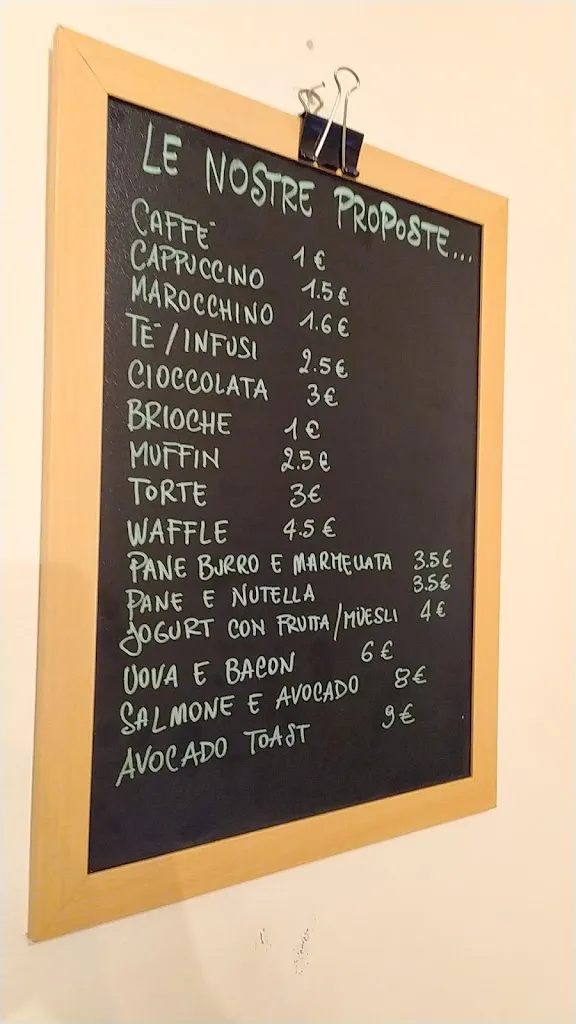 LE NOSTRE PROPOSTE...
CAFFE' 1 €
CAPPUCCINO 1.5 €
MAROCCHINO 1.6 €
TE'/INFUSI 2.5 €
CIOCCOLATA 3 €
BRIOCHE 1 €
MUFFIN 2.5 €
TORTE 3 €
WAFFLE 4.5 €
PANE BURRO E MARMELLATA 3.5 €
PANE E NUTELLA 3.5 €
JOGURT CON FRUTTA/MÜESLI 4 €
UOVA E BACON 6 €
SALMONE E AVOCADO 8 €
AVOCADO TOAST 9 €